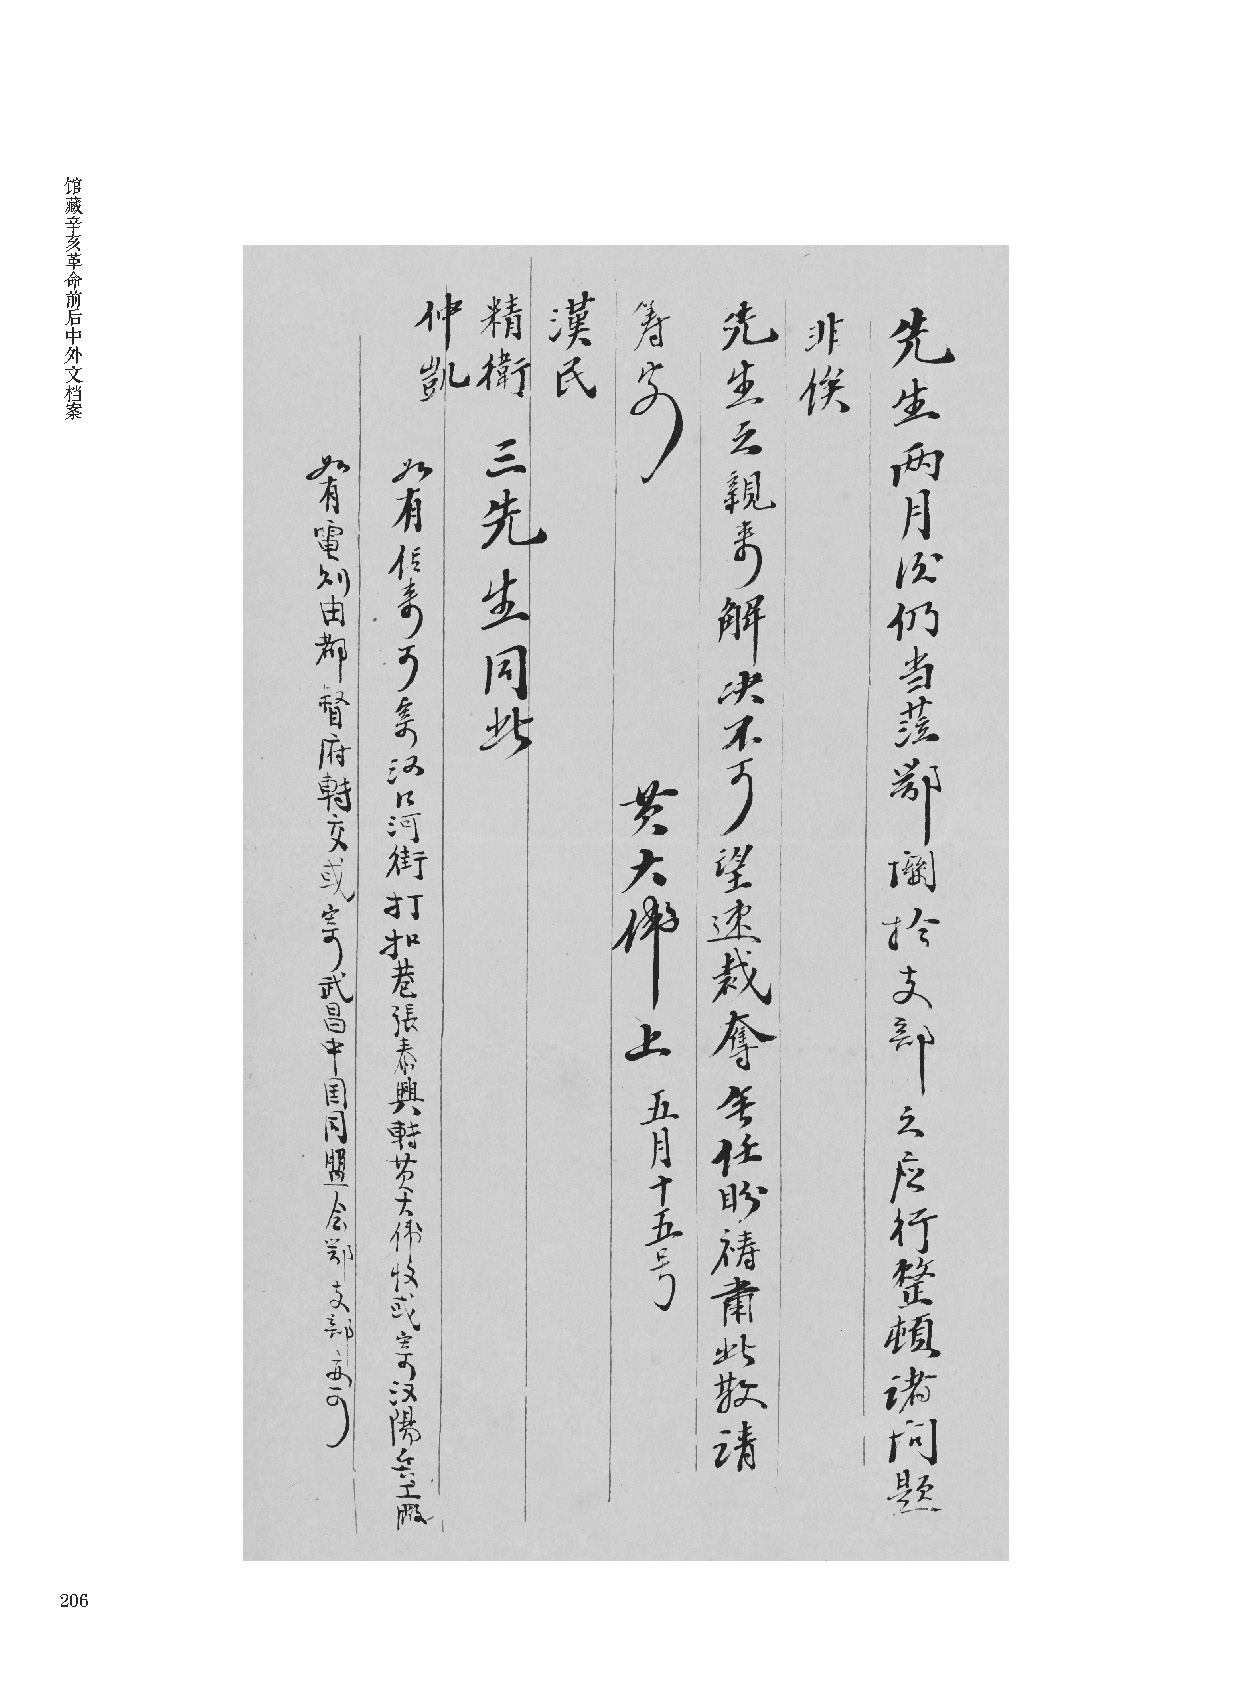 馆藏辛亥革命前后中外文档案
先生两月后仍当莅鄂関於支部之应行整頓诸问题
非俟
先生之親来解决不可望速裁奪無任盼祷肃此敬请
筹安
黄大偉上 五月十五号
漢民
精衛 三先生同此
仲凱
如有信来可寄汉口河街打扣巷張泰興轉黄大伟收或寄汉陽兵工厰
如有電则由都督府轉交或寄武昌中国同盟会鄂支部亦可
206